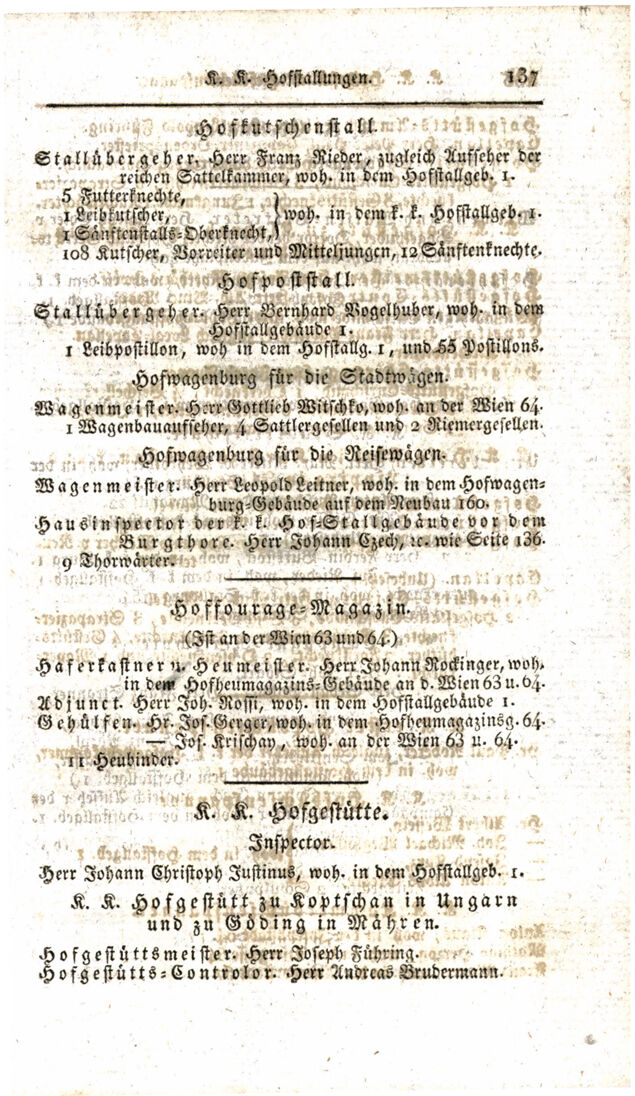 K. K. Hofstallungen. 137
Hofkutschenstall.
Stallübergeher. Herr Franz Rieder, zugleich Aufseher der
reichen Sattelkammer, woh. in dem Hofstallgeb. 1.
5 Futterknechte,
1 Leibkutscher, } woh. in dem k. k. Hofstallgeb. 1.
1 Sänftenstalls-Oberknecht,
108 Kutscher, Vorreiter und Mitteljungen, 12 Sänftenknechte.
Hofpoststall.
Stallübergeher. Herr Bernhard Vogelhuber, woh. in dem
Hofstallgebäude 1.
1 Leibpostillon, woh in dem Hofstallg. 1, und 55 Postillons.
Hofwagenburg für die Stadtwägen.
Wagenmeister. Herr Gottlieb Witschko, woh. an der Wien 64.
1 Wagenbauaufseher, 4 Sattlergesellen und 2 Riemergesellen.
Hofwagenburg für die Reisewägen.
Wagenmeister. Herr Leopold Leitner, woh. in dem Hofwagen-
burg-Gebäude auf dem Neubau 160.
Hausinspector der k. k. Hof-Stallgebäude vor dem
Burgthore. Herr Johann Czech, ꝛc. wie Seite 136.
9 Thorwärter.
Hoffourage-Magazin.
(Ist an der Wien 63 und 64.)
Haferkastner u. Heumeister. Herr Johann Rockinger, woh.
in dem Hofheumagazins-Gebäude an d. Wien 63 u. 64.
Adjunct. Herr Joh. Rossi, woh. in dem Hofstallgebäude 1.
Gehülfen. Hr. Jos. Gerger, woh. in dem Hofheumagazinsg. 64.
— Jos. Krischay, woh. an der Wien 63 u. 64.
11 Heubinder.
K. K. Hofgestütte.
Inspector.
Herr Johann Christoph Justinus, woh. in dem Hofstallgeb. 1.
K. K. Hofgestütt zu Koptschan in Ungarn
und zu Göding in Mähren.
Hofgestüttsmeister. Herr Joseph Führing.
Hofgestütts-Controlor. Herr Andreas Brudermann.